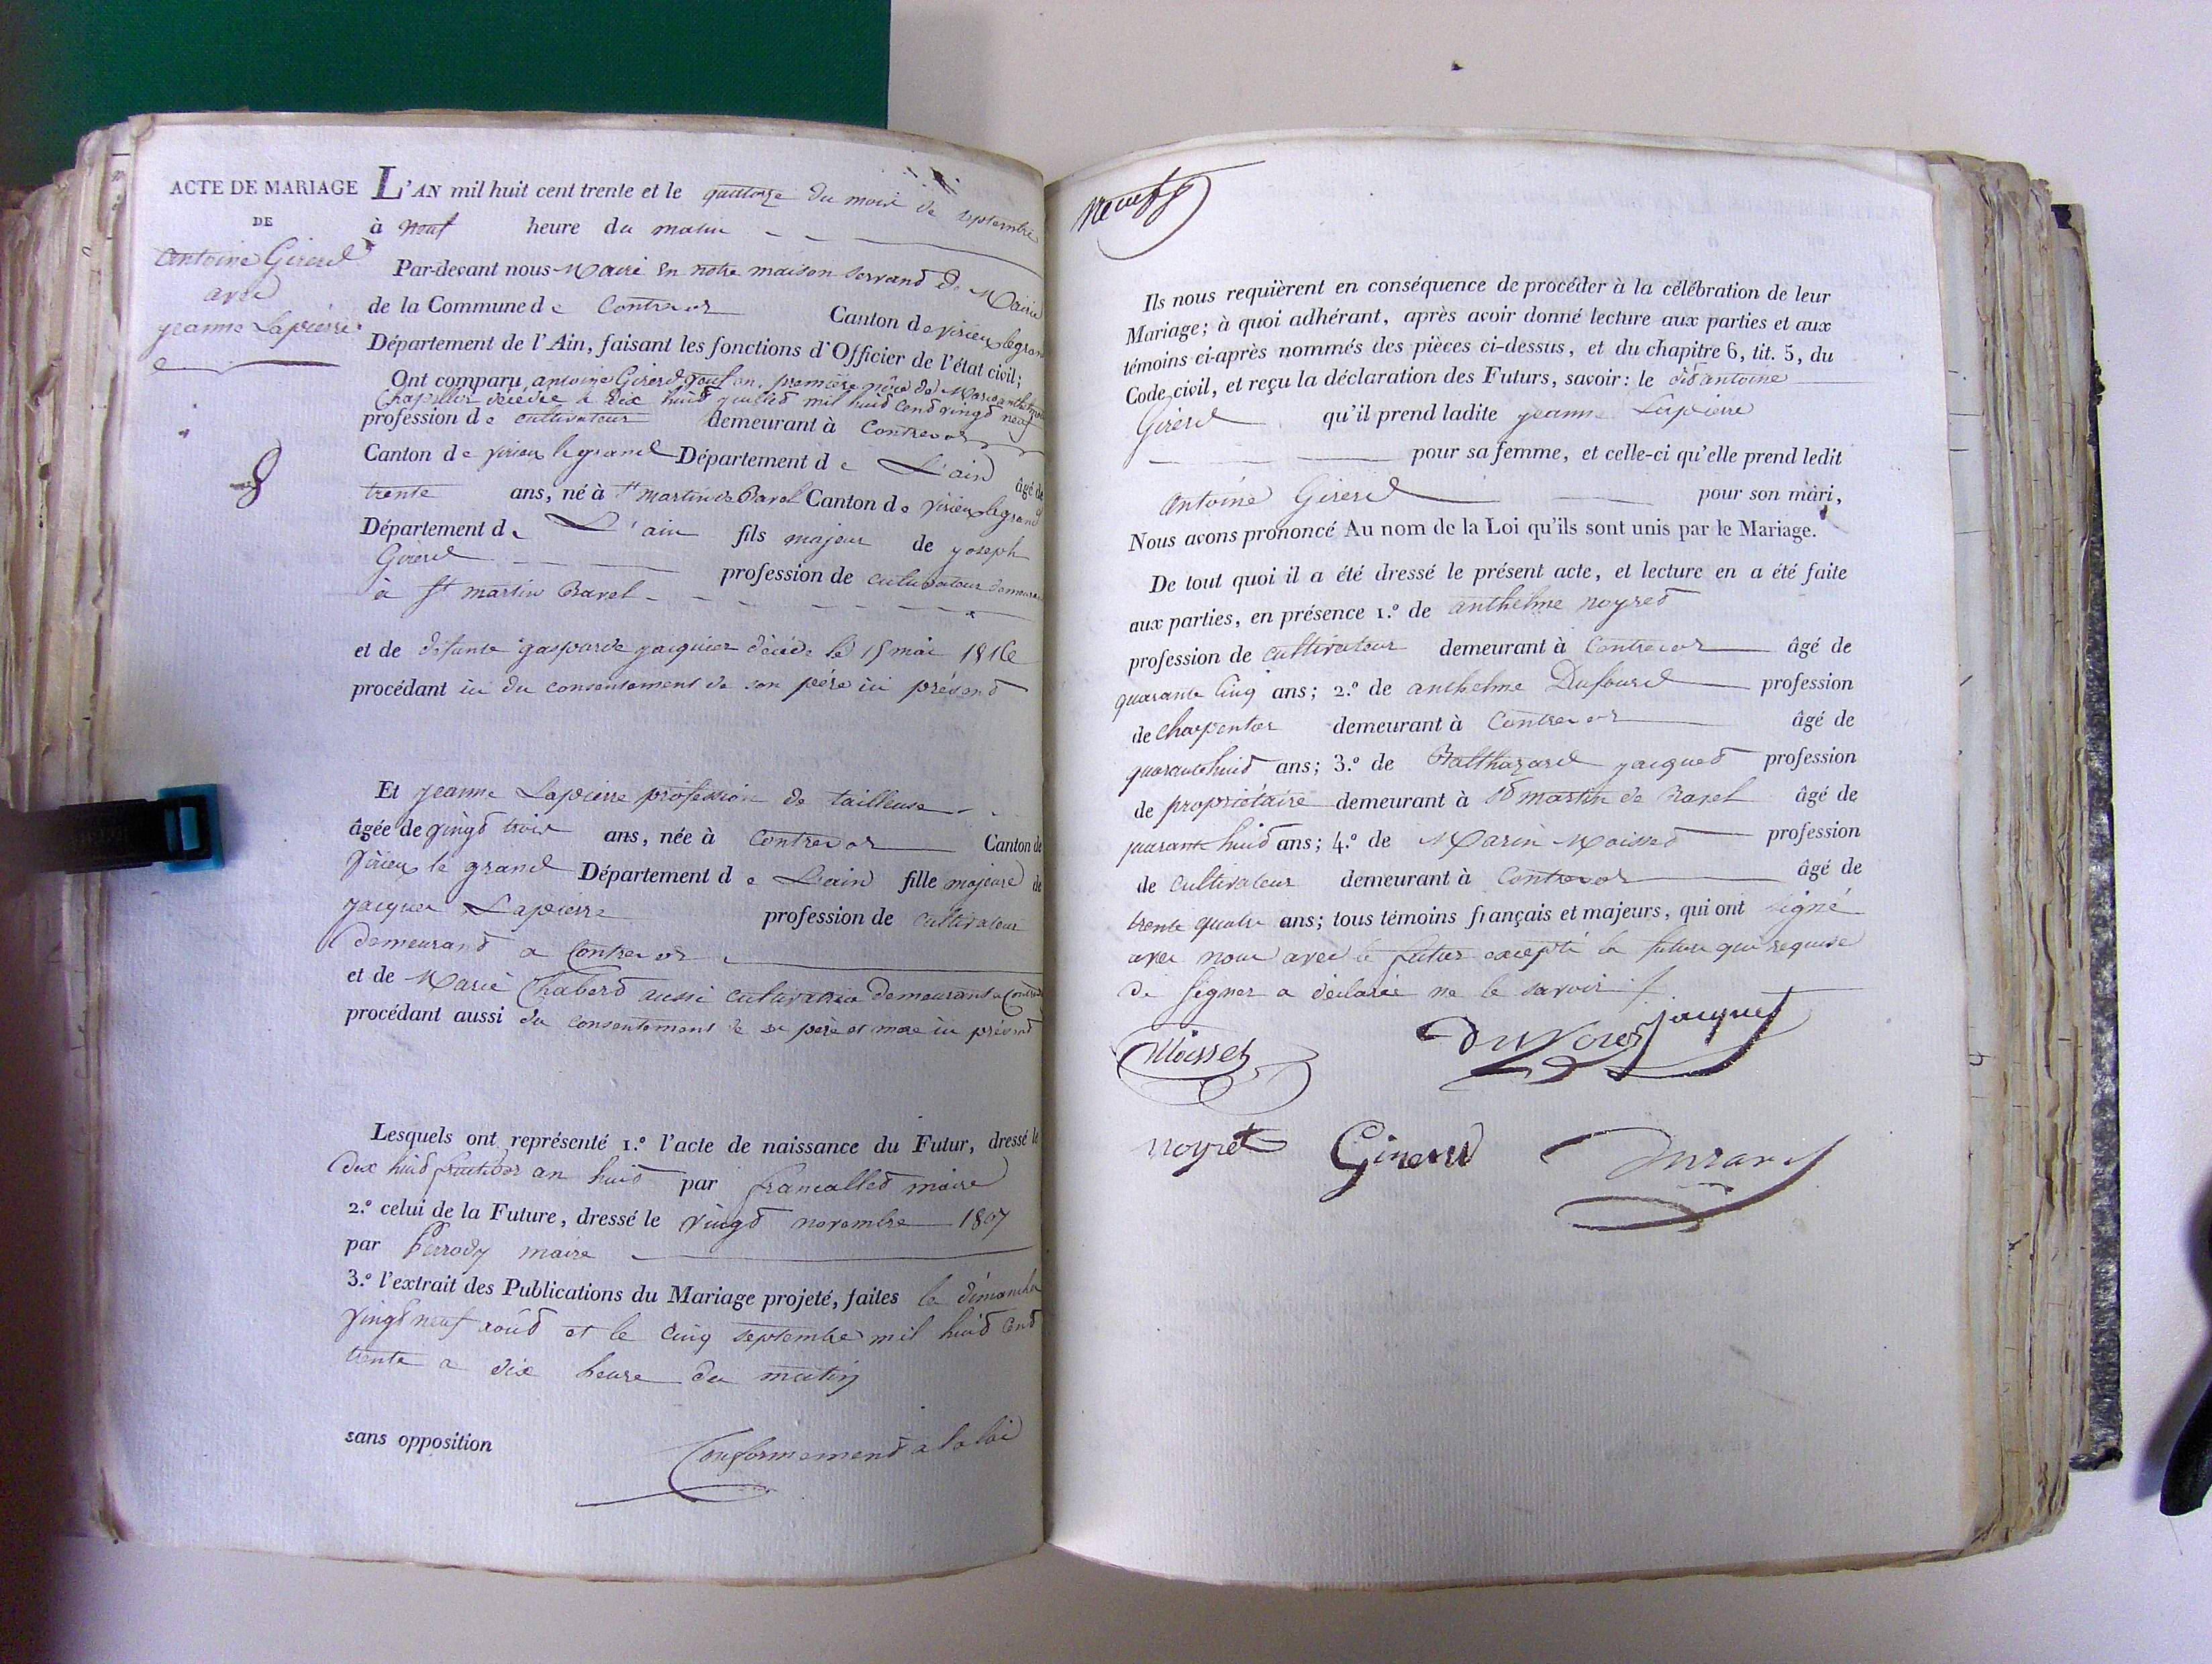 ACTE DE MARIAGE
DE
Antoine Girerd
avec
jeanne Lapierre
8
L'AN mil huit cent trente et le quatorze du mois de septembre
à neuf heure du matin
Par-devant nous Maire en notre maison servand de Mairie
de la Commune de Contrevoz Canton de virieu le grand
Département de l'Ain, faisant les fonctions d'Officier de l'état civil;
Ont comparu antoine Girerd en première de Marie anthelmette
Chapellus décédée à dix huid juilled mil huid cend vingd neuf
profession de cultivateur demeurant à Contrevoz
Canton de virieu le grand Département de L'ain âgé de
trente ans, né à st martin de Bavel Canton de virieu le grand
Département de L'ain fils majeur de joseph
Girerd profession de cultivateur demeurant
à st martin Bavel
et de defunte gasparde jacquier décéde le 15 mai 1816
procédant ici du consentement de son père ici présend
Et jeanne Lapierre profession de tailleuse
âgée de vingd trois ans, née à Contrevoz Canton de
virieu le grand Département de L'ain fille majeure de
jacques Lapierre profession de cultivateur
demeurand a Contrevoz
et de Marie Chaberd aussi cultivatrice demeurant a Contrevoz
procédant aussi du consentement de se père et mère ici présend
Lesquels ont représenté 1.º l'acte de naissance du Futur, dressé le
dix huid fructidor an huid par francalled maire
2.º celui de la Future, dressé le vingd novembre 1807
par Perrody maire
3.º l'extrait des Publications du Mariage projeté, faites le dimanche
vingd neuf aoûd et le cinq septembre mil huid cend
trente a dix heure du matin
sans opposition Conformemend a la loi
neuf
Ils nous requièrent en conséquence de procéder à la célébration de leur
Mariage; à quoi adhérant, après avoir donné lecture aux parties et aux
témoins ci-après nommés des pièces ci-dessus, et du chapitre 6, tit. 5, du
Code civil, et reçu la déclaration des Futurs, savoir: le did antoine
Girerd qu'il prend ladite jeanne Lapierre
pour sa femme, et celle-ci qu'elle prend ledit
antoine Girerd pour son mari,
Nous avons prononcé Au nom de la Loi qu'ils sont unis par le Mariage.
De tout quoi il a été dressé le présent acte, et lecture en a été faite
aux parties, en présence 1.º de anthelme noyred
profession de cultivateur demeurant à Contrevoz âgé de
quarante cinq ans; 2.º de anthelme Dufourd profession
de charpentier demeurant à Contrevoz âgé de
quarantehuid ans; 3.º de Balthazard jacqued profession
de propriétaire demeurant à st martin de Bavel âgé de
quarant huid ans; 4.º de Marin Moissed profession
de cultivateur demeurant à Contrevoz âgé de
trente quatre ans; tous témoins français et majeurs, qui ont signé
avec nous avec le futur excepté la future qui requise
de signer a déclarée ne le savoir
Moisset
jacquet
noyret Girerd